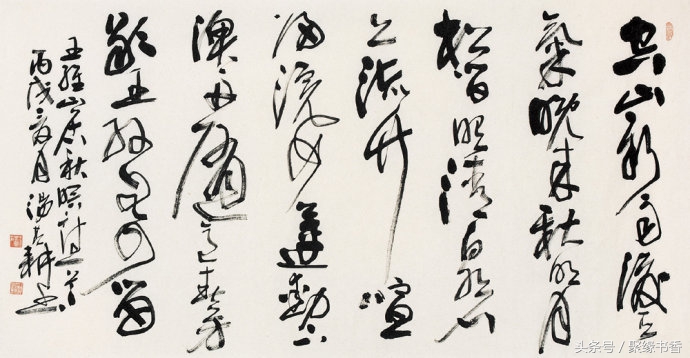 空山新雨後天
氣晚来秋明月
松间照清泉石
上流竹喧
归浣女莲动下
渔舟随意春芳
歇王孙自可留
王維山居秋暝诗一首
丙戌夏月 耕书
头条号 / 聚缘书香